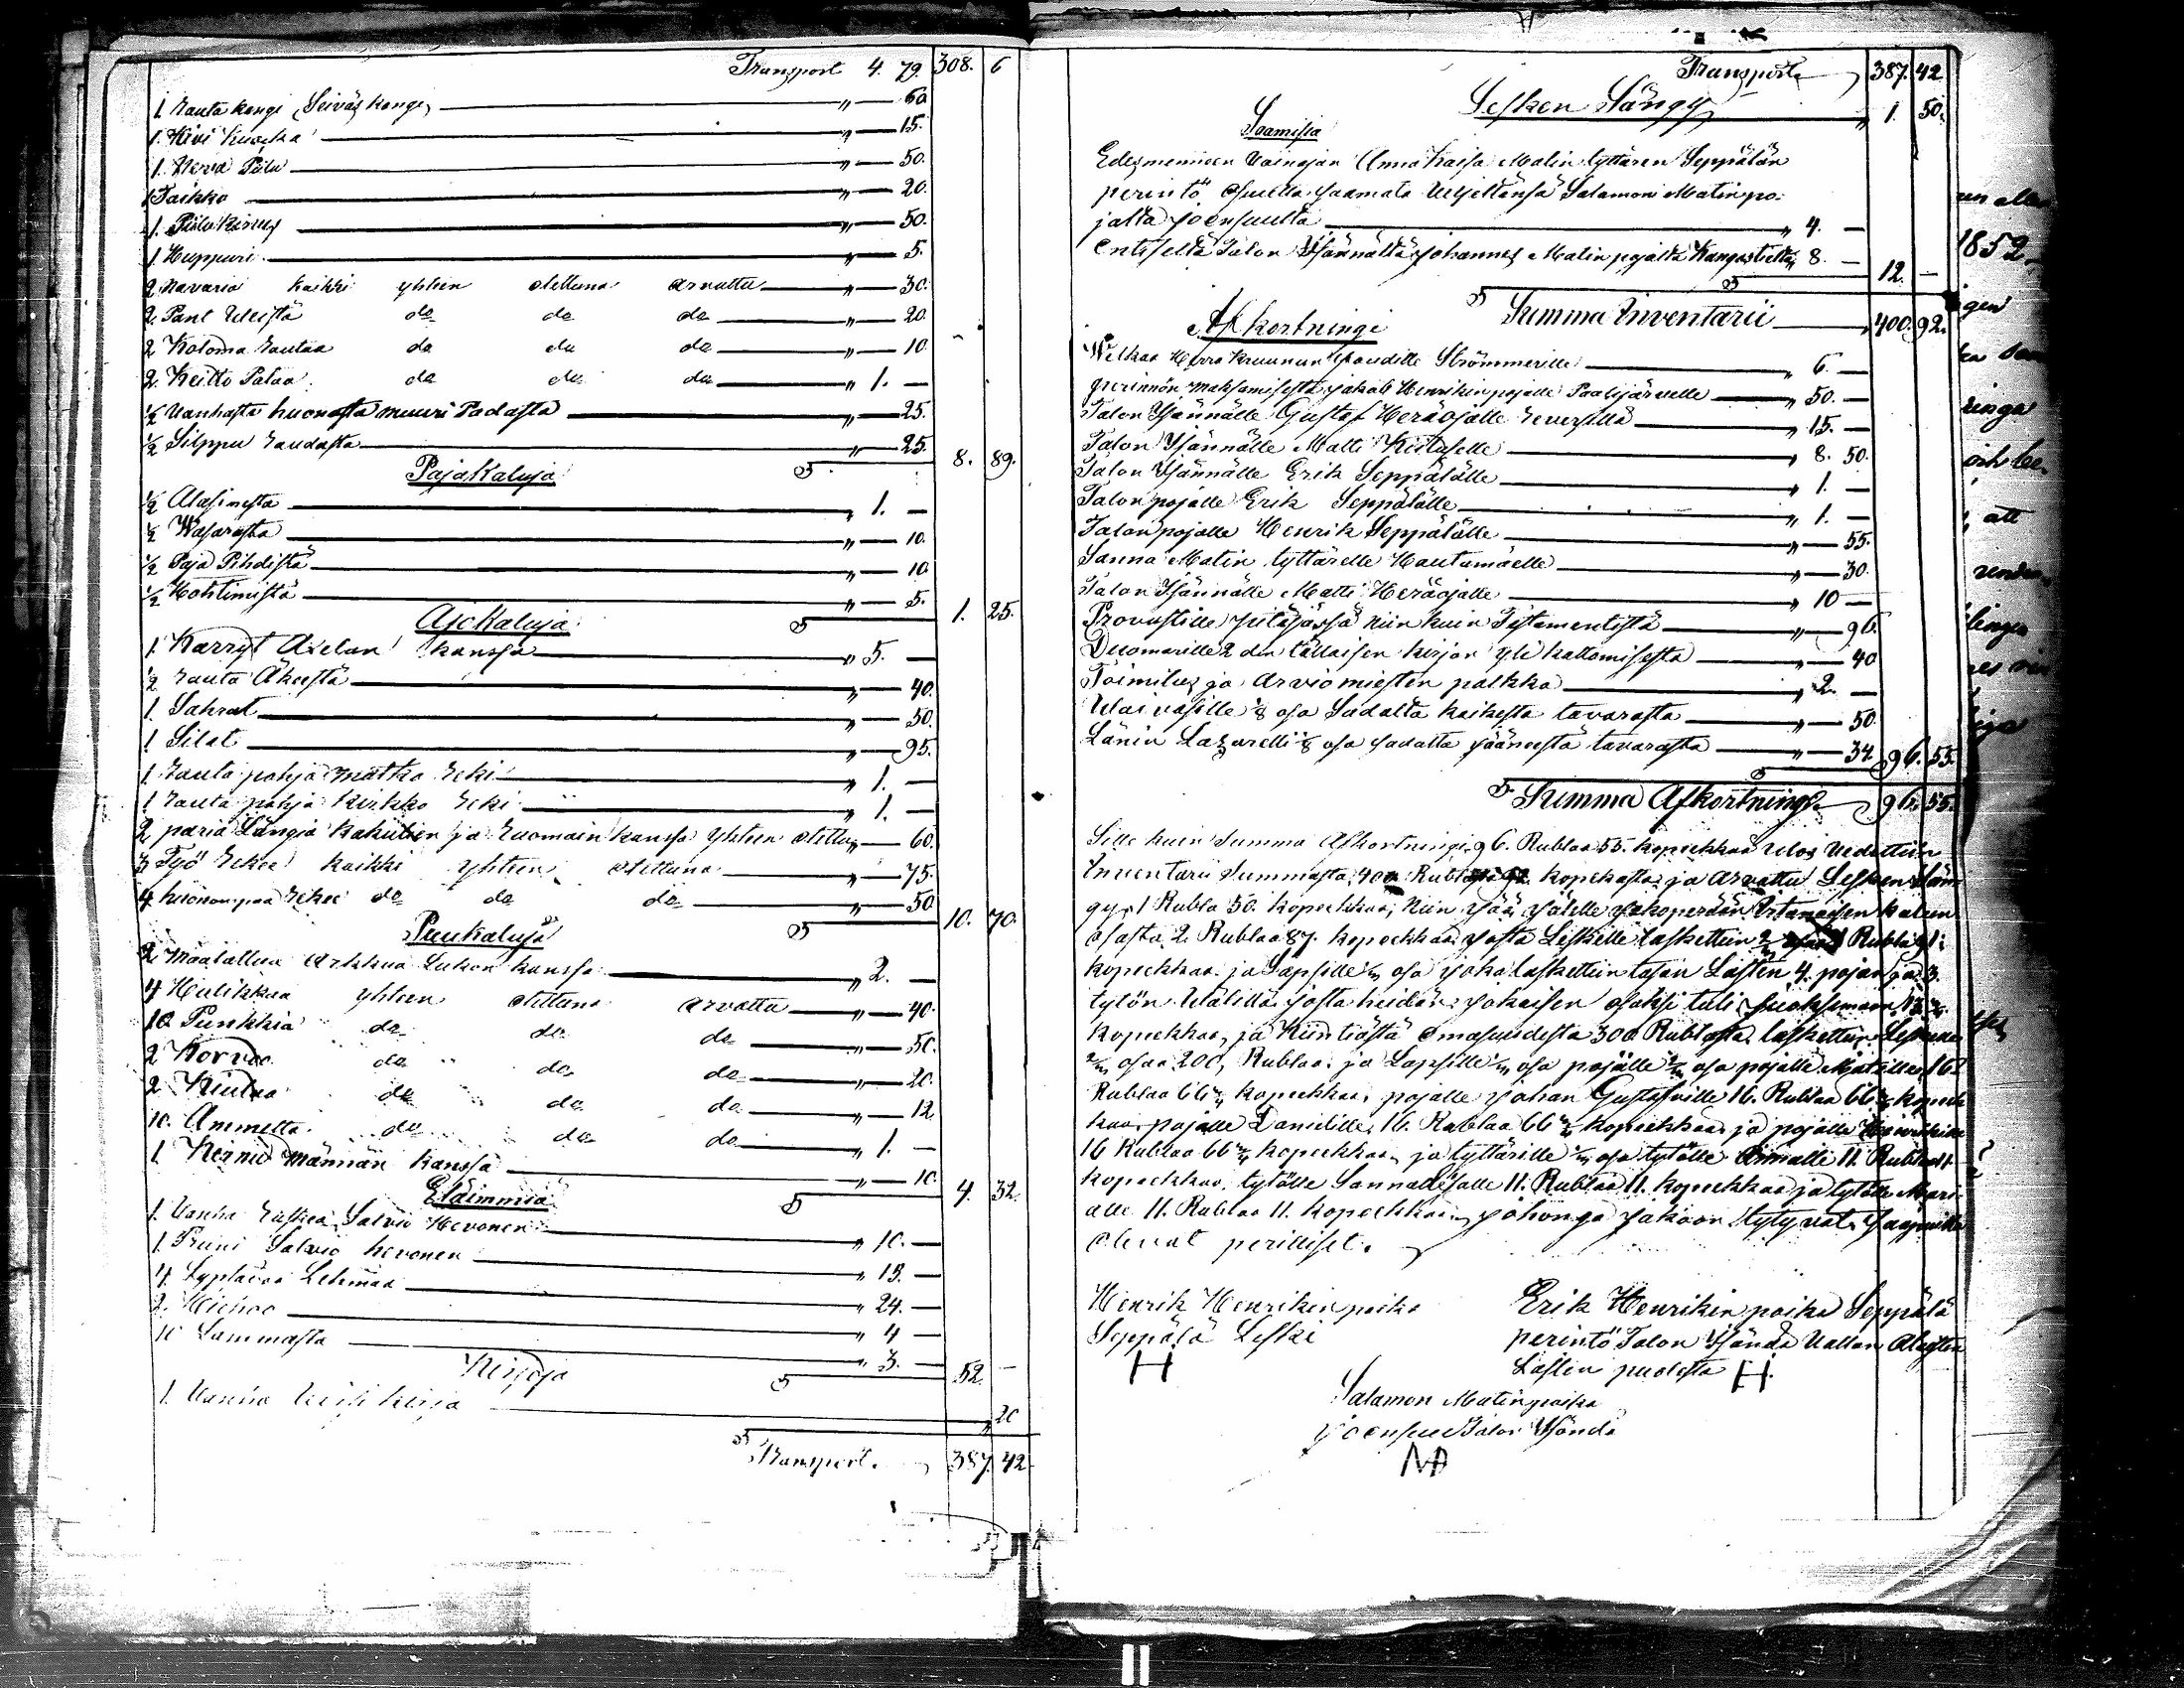 Transport 4. 79. 308. 6
1. Rauta kangi (Seiväs kangi) " 60
1. Kivi kuokka " 15.
1. Kerra Piilu " 50.
1 Taikko " 20.
1. Piilukirves " 50.
1 Huppuri " 5.
2 navaria kaikki yhteen otettuna arvattu " 30.
2. Pant Veistä do do do " 20
2 Koloma Rautaa do do do " 10
2. Keitto Pataa do do do " 1. —
1/2 Vanhasta huonosta muuri Padasta " 25.
1/2 Silppu Raudasta " 25. 8. 89.
PajaKaluja
1/2 Alasimesta " 1. —
1/2 Wasarasta " 10.
1/2 Paja Pihdistä " 10
1/2 Kohtimista " 5. 1. 25.
AjoKaluja
1. Karryt Axelan kanssa " 5. —
1/2 Rauta Äkeestä " 40.
1. Sahrat " 50.
1 Silat " 95.
1. Rauta pohja matka Reki " 1. —
1 Rauta pohja kirkko Reki " 1. —
2 paria Längiä Rahkuien ja Luomain kanssa yhteen otettu " 60.
3 Työ Rekeä kaikki yhteen otettuna " 75.
4 huonompaa Rekeä do do do " 50 10. 70.
Puukaluja
2 Maalattua Arkkua Lukon kanssa " 2. —
4 Hulikkaa yhteen otettuna arvattu " 40.
10 Punkkia do do do " 50.
2 Korvoa do do do " 20.
2 Kiulua do do do " 12
10. Ammetta do do do " 1. —
1 Kirnu männän kanssa " 10. 4. 32.
Eläimmiä
1. Vanha Ruskea Salvio Hevonen " 10. —
1. Pruni Salvio hevonen " 13. —
4. Lypsävää Lehmää " 24. —
2. Hiehoa " 4 —
10 Lammasta " 3. — 52. —
Kirjoja
1. Vanha Virsi kirja " 20
Transport. 387. 42

Transport 387. 42
Lesken Sängy " 1. 50.
Saamisia
Edesmenneen Vainajan Anna Kaisa Matin tyttären Seppälän
perintö osuutta saamata Veljeltänsä Salamon Matin po:
jalta Joensuulta " 4. —
entiseltä Talon Isännältä Johannes Matin pojalta Kangastieltä " 8. — 12. —
Summa Inventarii 400. 92.
Afkortningi
Welkaa Herra Kruunun Voudille Strömmerille " 6. —
perinnön maksamisesta Jakob Henrikin pojalle Paalijärvelle " 50. —
Talon Isännälle Gustaf Heräojalle Reversillä " 15. —
Talon Isännälle Matti Kiitaselle " 8. 50.
Talon Isännälle Erik Seppälälle " 1. —
Talon pojalle Erik Seppälälle " 1. —
Talon pojalle Henrik Seppälälle " 55.
Sanna Matin tyttärelle Hautamäelle " 30.
Talon Isännälle Matti Heräojalle " 10 —
Provastille pitäjässä niin kuin Testamentistä " 96.
Duomarille 2 den tällaisen kirjan yli kattomisesta " 40
Toimitus ja arviomiesten palkka " 2. —
Vaivasille 1/8 osa Sadalta kaikesta tavarasta " 50.
Länin Lazaretti 1/8 osa sadalta jääneestä tavarasta " 34. 96. 55.
Summa Afkortningi 96. 55.
Sitte kuin Summa Afkortningi 96. Rublaa 55. kopeekkaa Ulos Vedettiin
Inventarii Summasta, 400 Rublasta 92. kopekasta ja arvattu Lesken Sän
gy, 1 Rubla 50. kopeekkaa; Niin Jää Jälelle Jakoperään Irtanaisen kalun
osasta 2. Rublaa 87. kopeekkaa josta Leskelle laskettiin 2/3 osaa 1 Rubla 91:
kopeekkaa ja Lapsille 1/3 osa joka laskettiin tasan Lasten 4. pojan ja 3.
tytön Välillä josta heidän Jokaisen osaksi tuli Juoksemaan 13 5/7
kopeekkaa, ja Kiinteästä omaisuudesta 300 Rublasta laskettiin Leskelle
2/3 osaa 200, Rublaa ja Lapsille 1/3 osa pojalle 2/3 osa pojalle Matille 16
Rublaa 66 2/3 kopeekkaa, pojalle Johan Gustafville 16. Rublaa 66 2/3 kopeek
kaa, pojalle Danielille 16. Rublaa 66 2/3 kopeekkaa ja pojalle Henrikille
16 Rublaa 66 2/3 kopeekkaa, ja tyttärille 1/3 osa tytölle Annalle 11 Rublaa 11
kopeekkaa, tytölle Sannalle 11. Rublaa 11. kopeekkaa ja tytölle Mari
alle 11. Rublaa 11. kopeekkaa, johonga jakoon tytyvät saapuvilla
olevat perilliset.
Henrik Henrikin poika
Seppälä Leski
H
Erik Henrikin poika Seppälä
perintö Talon Isändä Vallan Alaisten
Lasten puolesta H.
Salamon Matinpoika
Joensuu Talon Isändä
1852